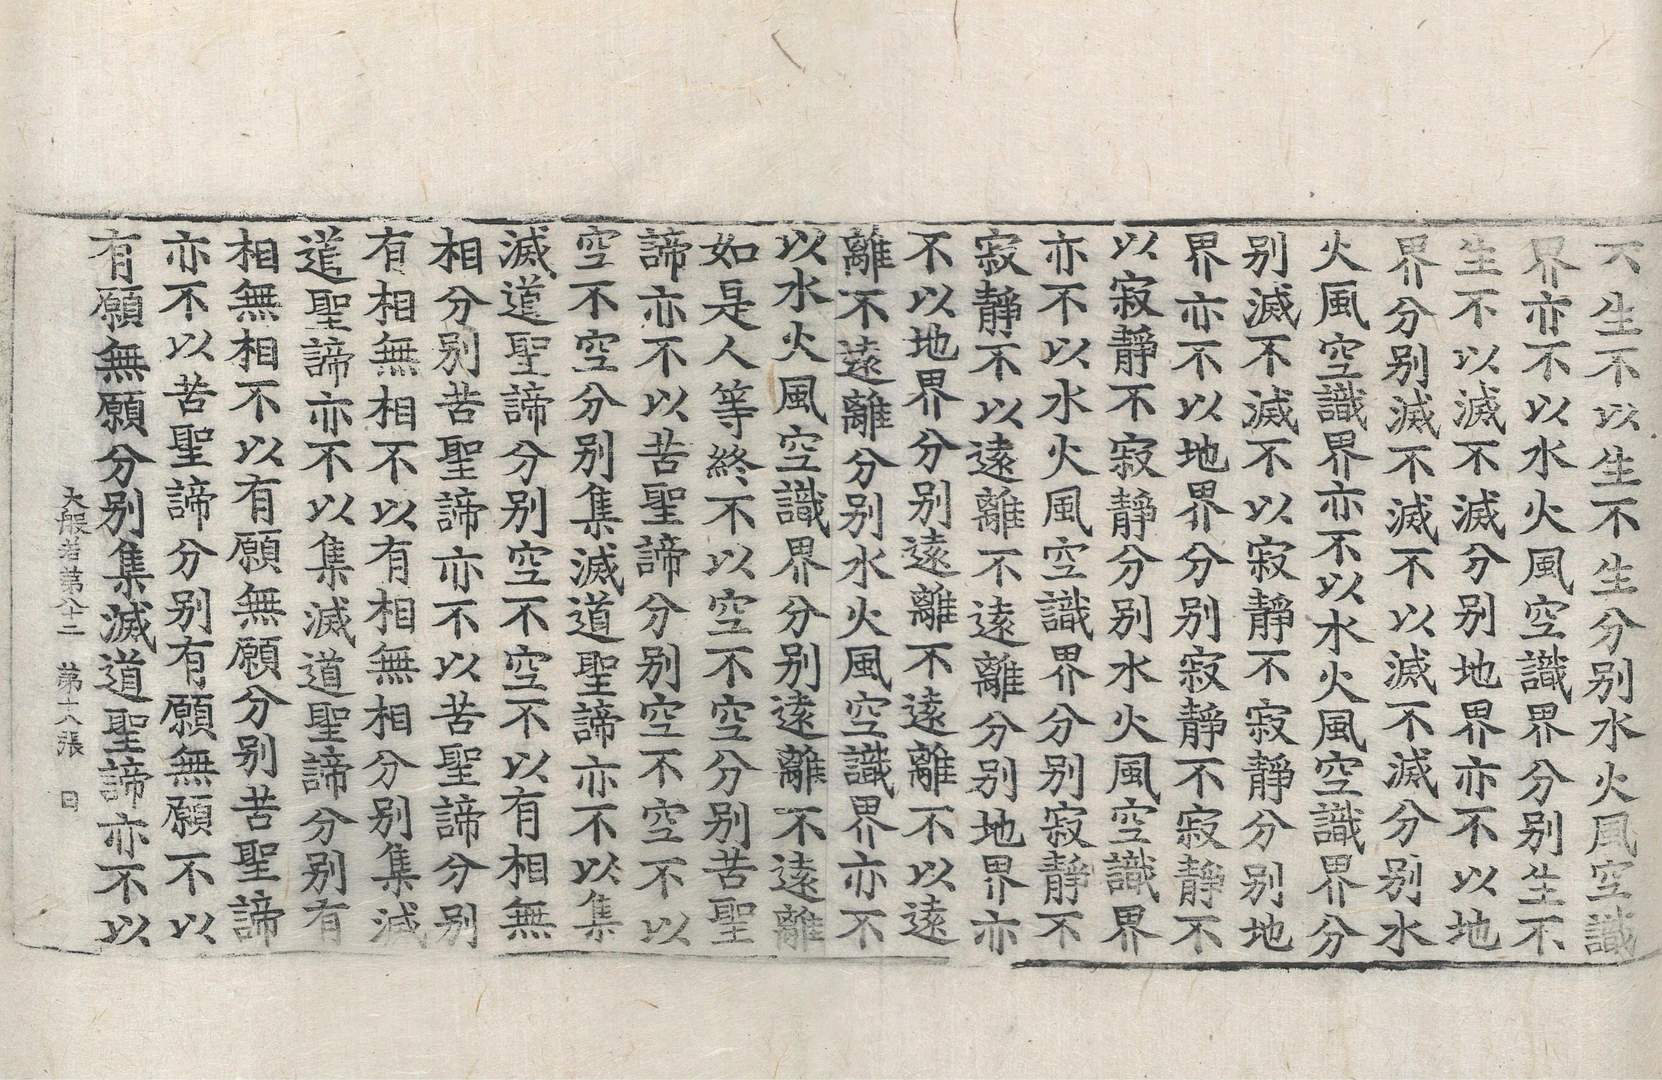 不生不以生不生分别水火風空識
界亦不以水火風空識界分别生不
生不以滅不滅分别地界亦不以地
界分别滅不滅不以滅不滅分别水
火風空識界亦不以水火風空識界分
别滅不滅不以寂靜不寂靜分别地
界亦不以地界分别寂靜不寂靜不
以寂靜不寂靜分别水火風空識界
亦不以水火風空識界分别寂靜不
寂靜不以遠離不遠離分别地界亦
不以地界分别遠離不遠離不以遠
離不遠離分别水火風空識界亦不
以水火風空識界分别遠離不遠離
如是人等終不以空不空分别苦聖
諦亦不以苦聖諦分别空不空不以
空不空分别集滅道聖諦亦不以集
滅道聖諦分别空不空不以有相無
相分别苦聖諦亦不以苦聖諦分别
有相無相不以有相無相分别集滅
道聖諦亦不以集滅道聖諦分别有
相無相不以有願無願分别苦聖諦
亦不以苦聖諦分别有願無願不以
有願無願分别集滅道聖諦亦不以
大般若第八十二 第十六張 日